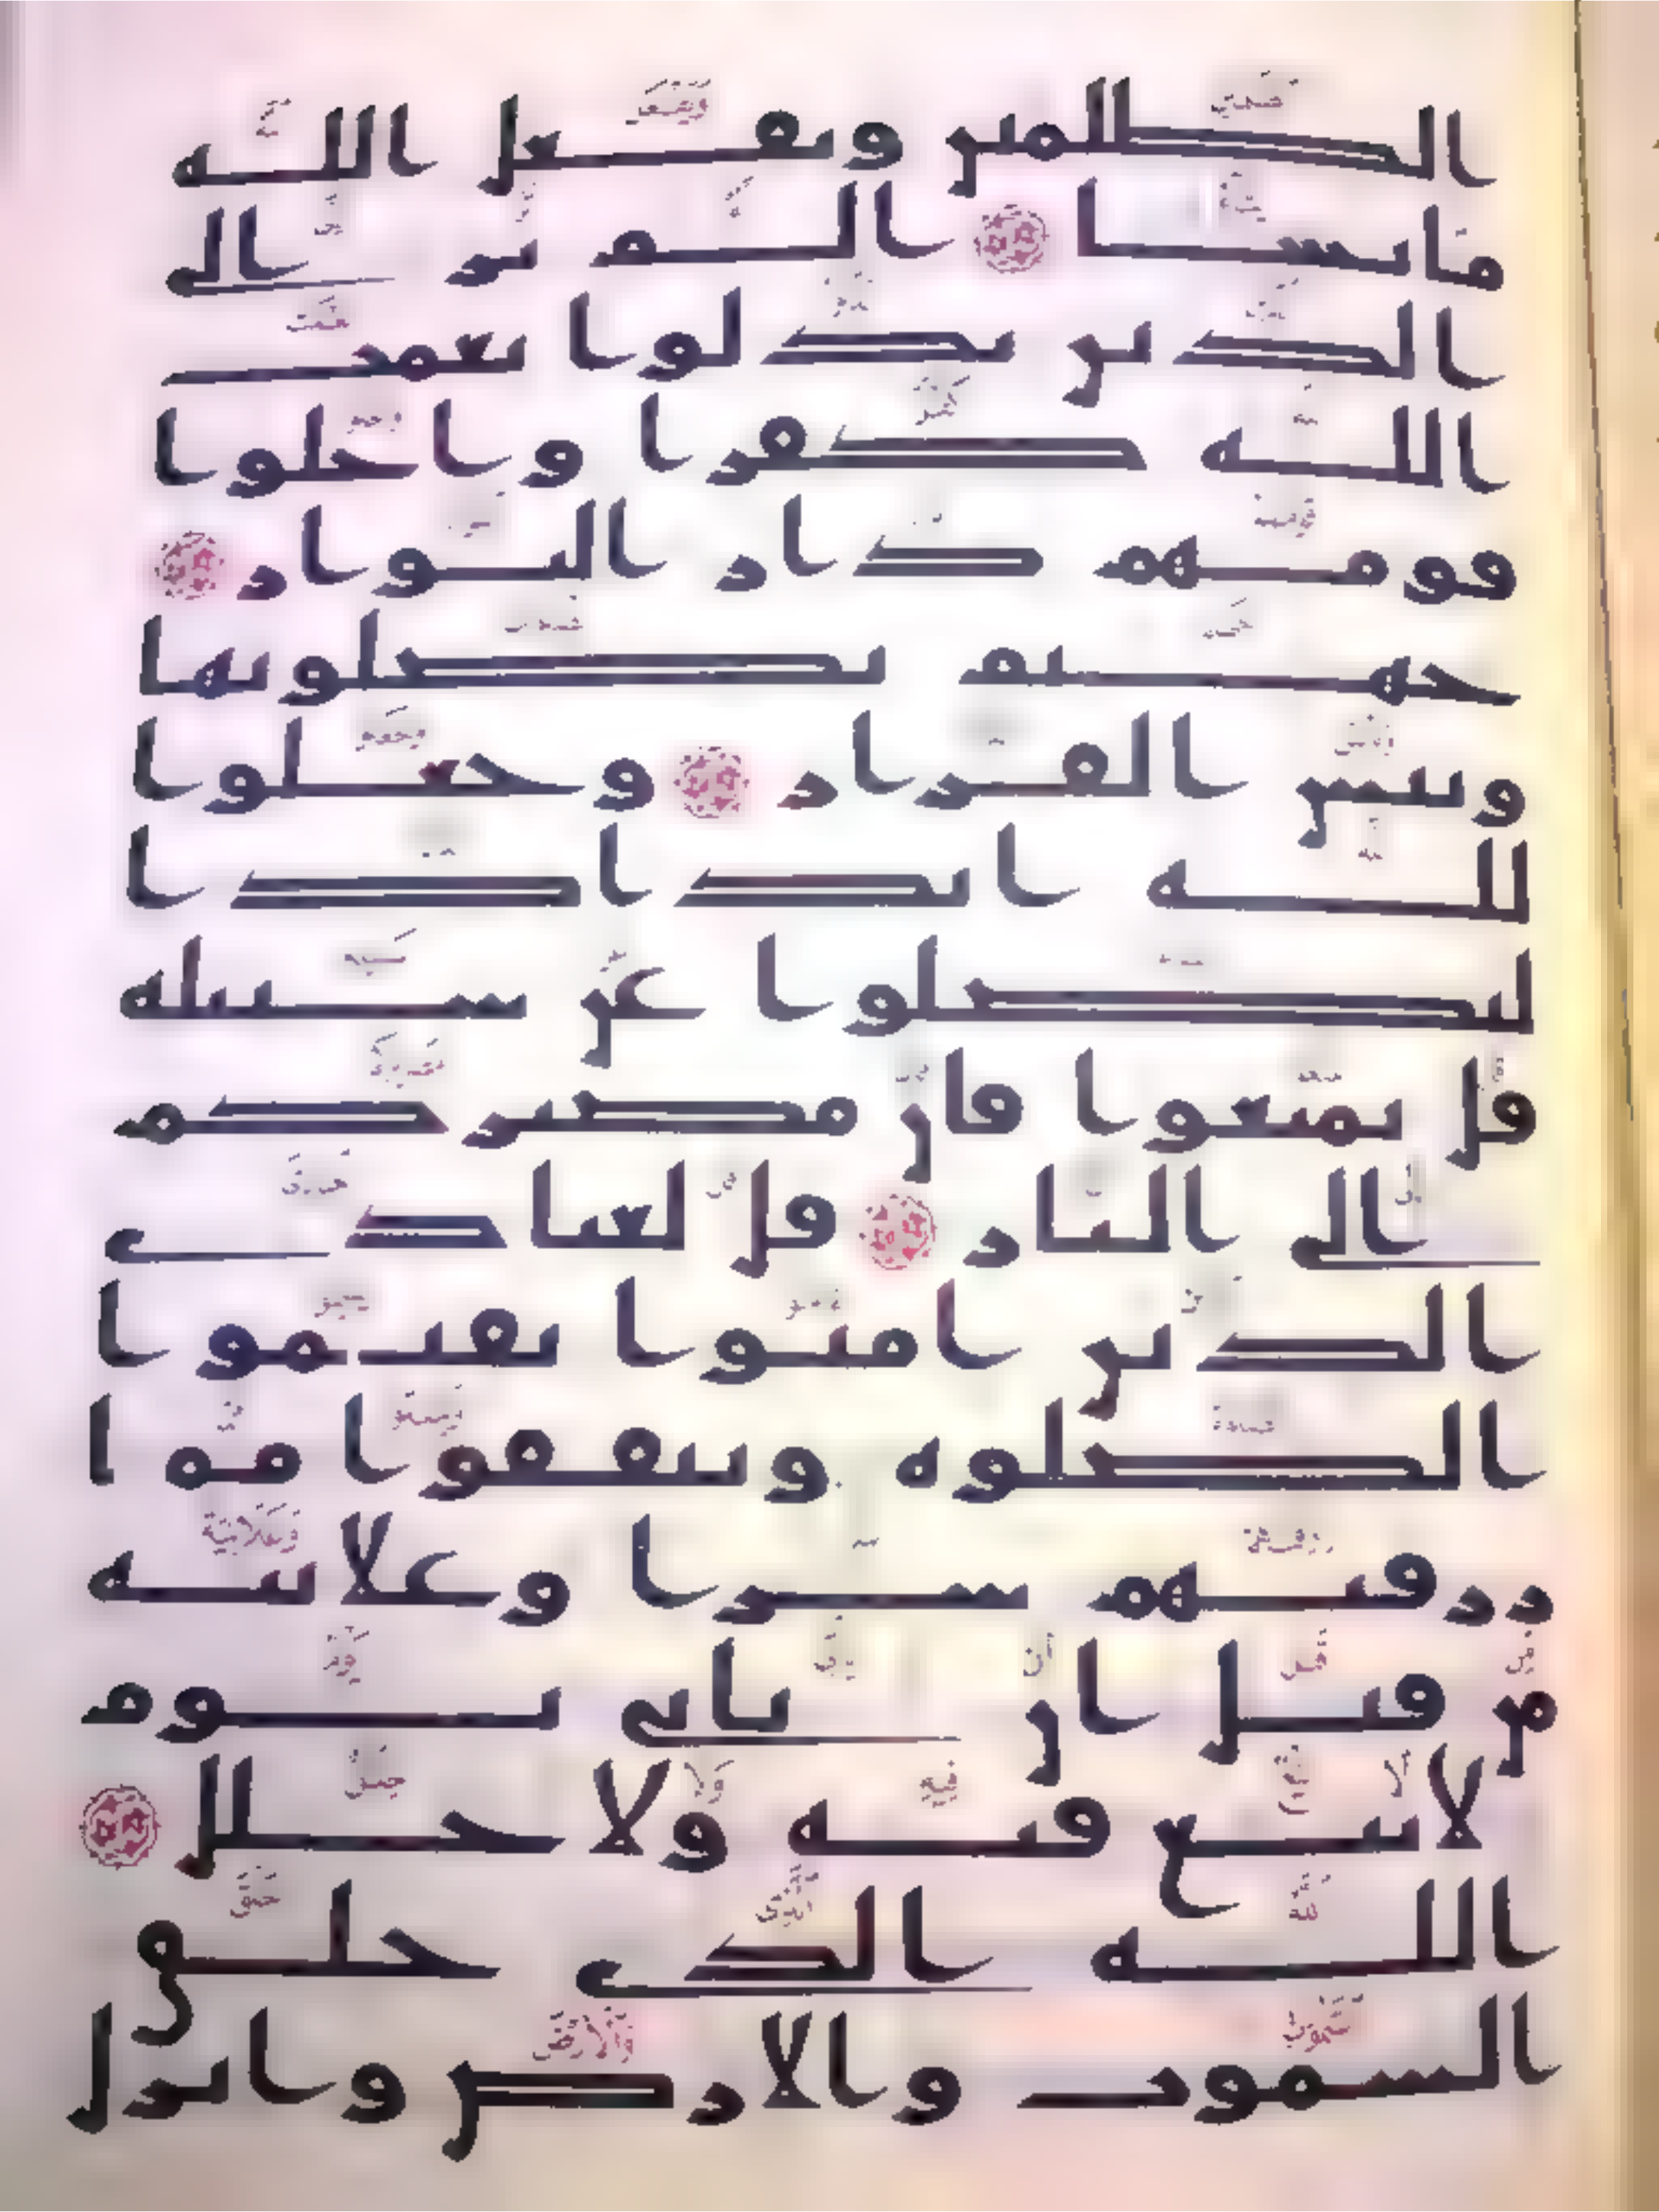 الظلمين ويفعل الله
ما يشا الم تر الى
الذين بدلوا نعمت
الله كفرا واحلوا
قومهم دار البوار
جهنم يصلونها
وبيس القرار وجعلوا
لله اندادا
ليضلوا عن سبيله
قل تمتعوا فان مصيركم
الى النار قل لعبادى
الذين امنوا يقيموا
الصلوه وينفقوا مما
رزقنهم سرا وعلانيه
من قبل ان ياتى يوم
لا بيع فيه ولا خلل
الله الذى خلق
السموت والارض وانزل